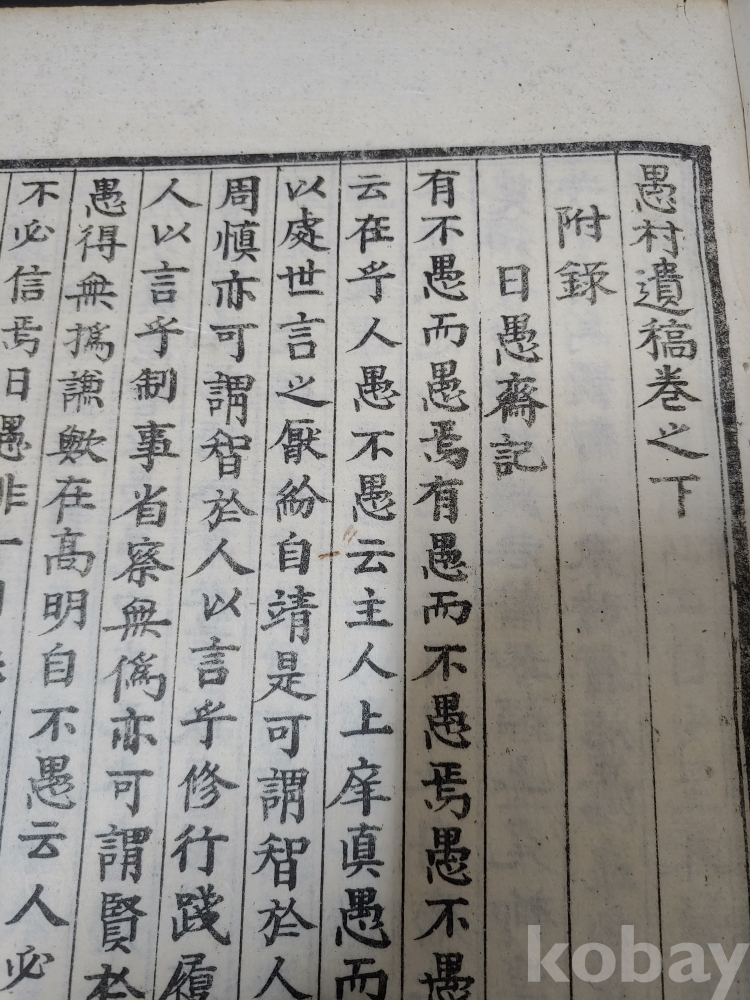 愚村遺稿卷之下
附錄
日愚齋記
有不愚而愚焉有愚而不愚焉愚不愚
云在乎人愚不愚云主人上庠眞愚而
以處世言之厭紛自靖是可謂智於人
周愼亦可謂智於人以言乎修行踐履
人以言乎制事省察無僞亦可謂賢於
愚得無撝謙歟在高明自不愚云人必
不必信焉日愚非一
kobay